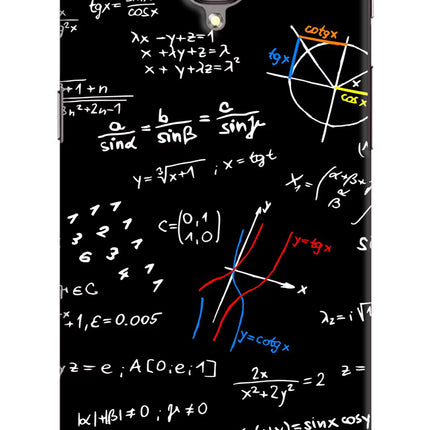 tgx = sinx/cosx
λx - y + z = 1
x + λy + z = λ
x + y + λz = λ²
cotgx
tgx
x
cosx
+1 + n
3n² + 2n - 1
a/sinα = b/sinβ = c/sinγ
y = ³√(x+1) ; x = tgt
X₁ = (α+β+
α
β
1 1 1
3 2 1
6 3 1
4 1
C = (0,1
1,0)
y
y = tgx
x
y = cotgx
∈C
+1, ε = 0.005
λ₂ = i√
z = e ; A[0; e; 1]
2x/(x² + 2y²) = 2
z =
|α| + |β| ≠ 0 ; γ ≠ 0
= sinx cosy